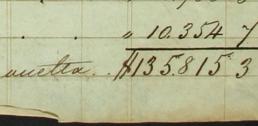 " 10.354 7
$135.815 3